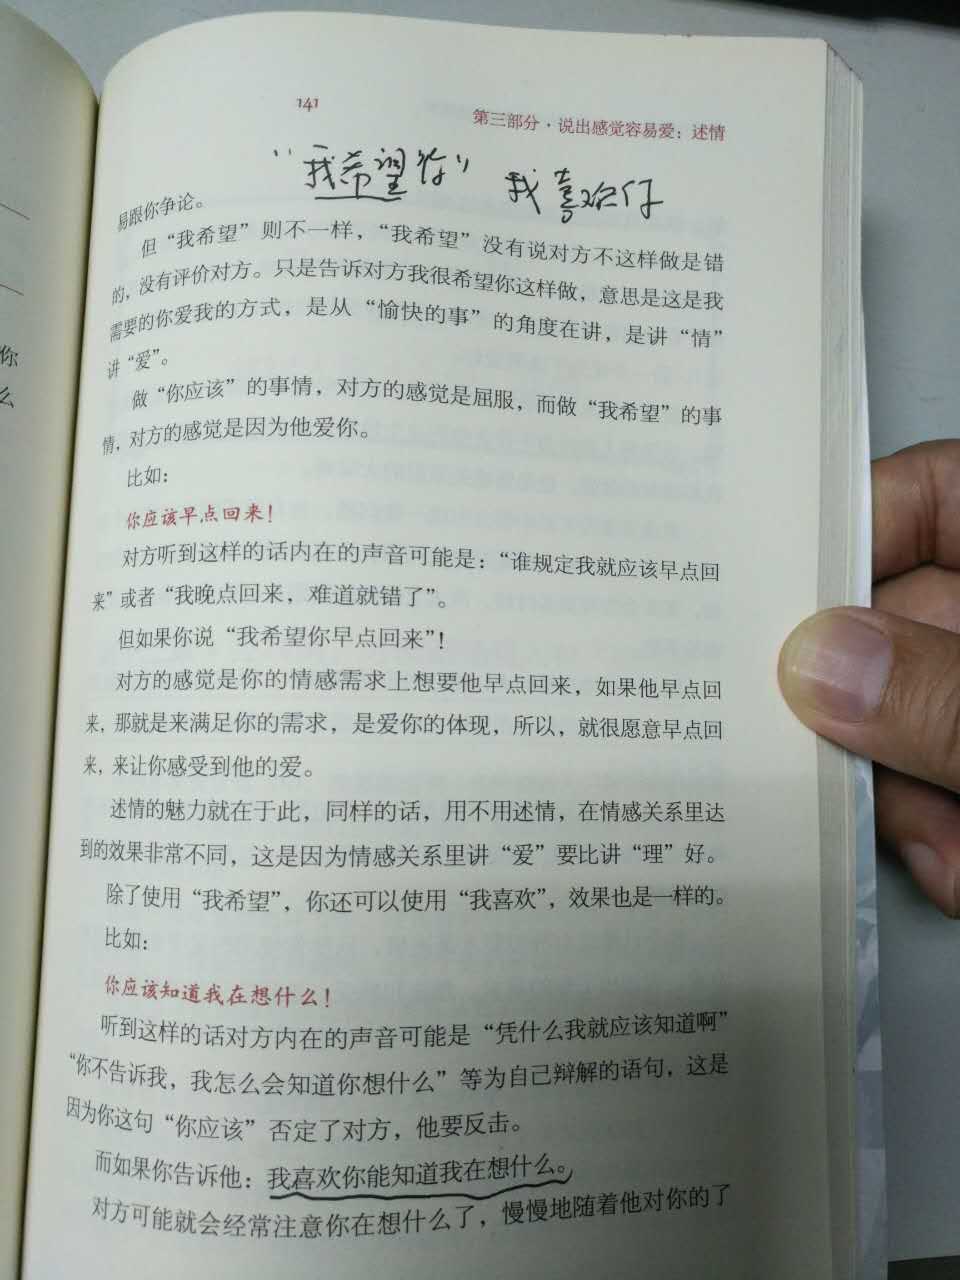 141
第三部分·说出感觉容易爱：述情
“我希望你” 我喜欢你
易跟你争论。
但“我希望”则不一样，“我希望”没有说对方不这样做是错
的，没有评价对方。只是告诉对方我很希望你这样做，意思是这是我
需要的你爱我的方式，是从“愉快的事”的角度在讲，是讲“情”
讲“爱”。
做“你应该”的事情，对方的感觉是屈服，而做“我希望”的事
情，对方的感觉是因为他爱你。
比如：
你应该早点回来！
对方听到这样的话内在的声音可能是：“谁规定我就应该早点回
来”或者“我晚点回来，难道就错了”。
但如果你说“我希望你早点回来”！
对方的感觉是你的情感需求上想要他早点回来，如果他早点回
来，那就是来满足你的需求，是爱你的体现，所以，就很愿意早点回
来，来让你感受到他的爱。
述情的魅力就在于此，同样的话，用不用述情，在情感关系里达
到的效果非常不同，这是因为情感关系里讲“爱”要比讲“理”好。
除了使用“我希望”，你还可以使用“我喜欢”，效果也是一样的。
比如：
你应该知道我在想什么！
听到这样的话对方内在的声音可能是“凭什么我就应该知道啊”
“你不告诉我，我怎么会知道你想什么”等为自己辩解的语句，这是
因为你这句“你应该”否定了对方，他要反击。
而如果你告诉他：我喜欢你能知道我在想什么。
对方可能就会经常注意你在想什么了，慢慢地随着他对你的了
你
么